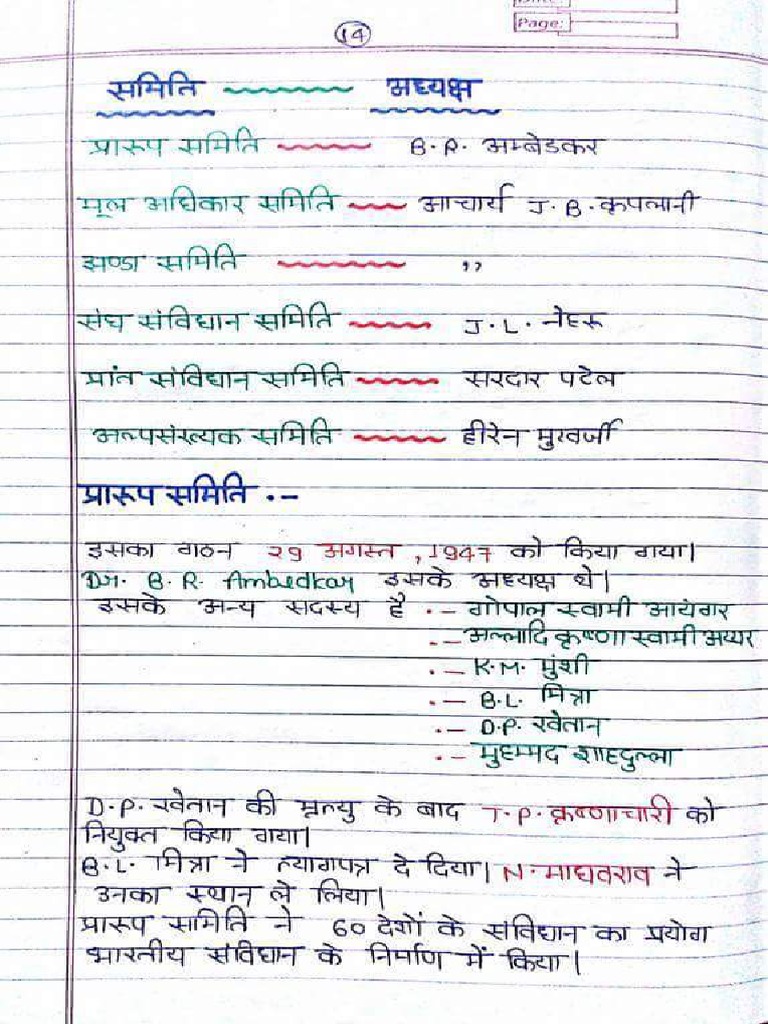 Page:
14
समिति अध्यक्ष
प्रारूप समिति B.R. अम्बेडकर
मूल अधिकार समिति आचार्य J.B. कृपलानी
झण्डा समिति ,,
संघ संविधान समिति J.L. नेहरू
प्रांत संविधान समिति सरदार पटेल
अल्पसंख्यक समिति हीरेन मुखर्जी
प्रारूप समिति .-
इसका गठन 29 अगस्त, 1947 को किया गया।
Dr. B.R. Ambedkar इसके अध्यक्ष थे।
इसके अन्य सदस्य है .- गोपाल स्वामी आयंगर
.- अल्लादि कृष्णा स्वामी अय्यर
.- K.M. मुंशी
.- B.L. मित्रा
.- D.P. खेतान
.- मुहम्मद शाहदुल्ला
D.P. खेतान की मृत्यु के बाद T.P. कृष्णाचारी को
नियुक्त किया गया।
B.L. मित्रा ने त्यागपत्र दे दिया। N. माधवराव ने
उनका स्थान ले लिया।
प्रारूप समिति ने 60 देशों के संविधान का प्रयोग
भारतीय संविधान के निर्माण में किया।